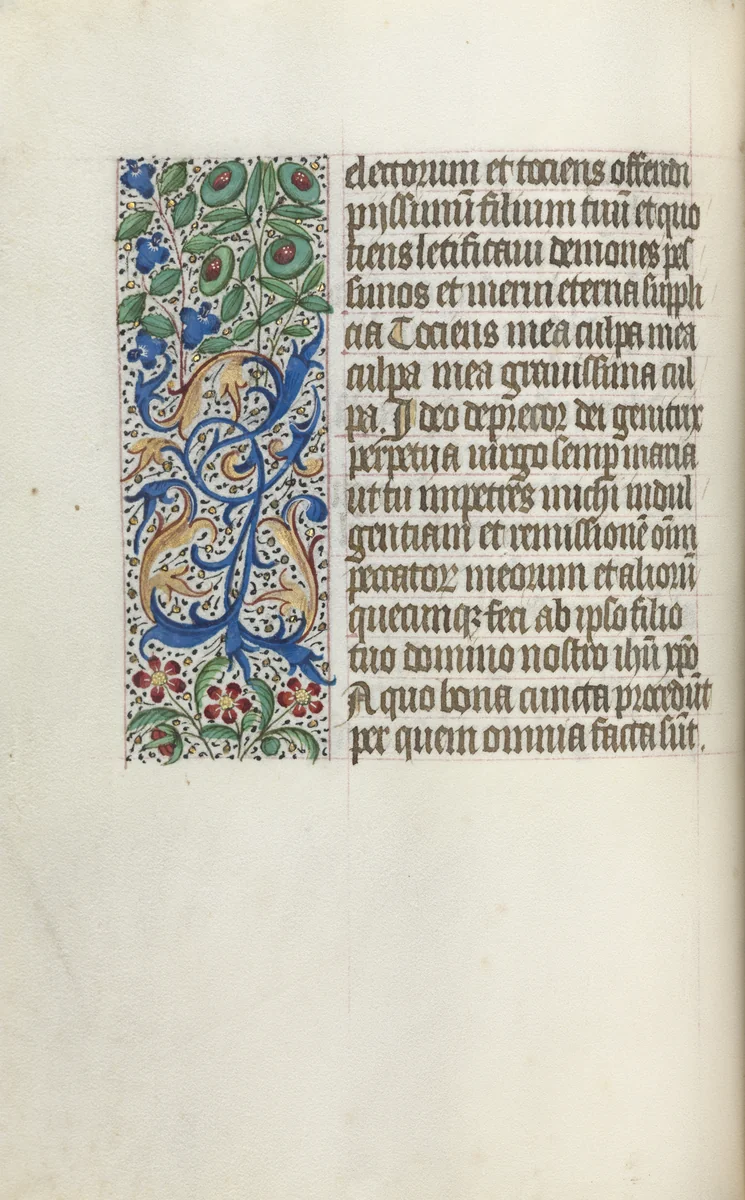 electorum et tociens offendi
pijssimū filium tuū et quo
tiens letificaui demones pes
simos et merui eterna suppli
cia Tociens mea culpa mea
culpa mea grauissima cul
pa. Ideo deprecor dei genitrix
perpetua uirgo semp maria
ut tu impetres michi indul
gentiam et remissionē oīm
peccatoꝝ meorum et alioru᷑
quecunqꝫ feci ab ipso filio
tuo domino nostro ihū xp̄o
A quo bona cuncta procedūt
per quem omnia facta sūt.